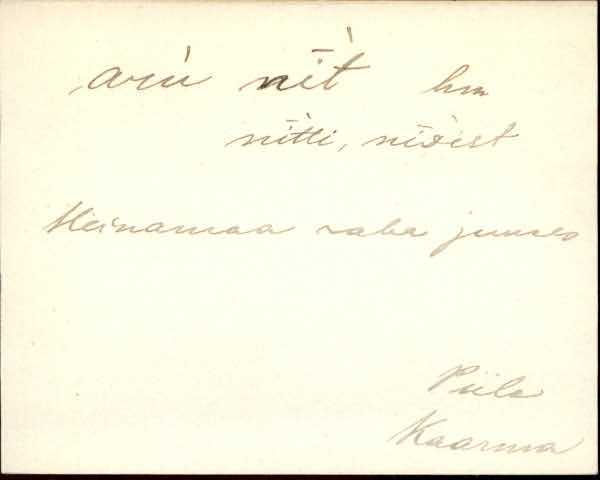 aru nīt̀ hm
nītti, nīdist
Heinamaa raba juures
Piila
Kaarma